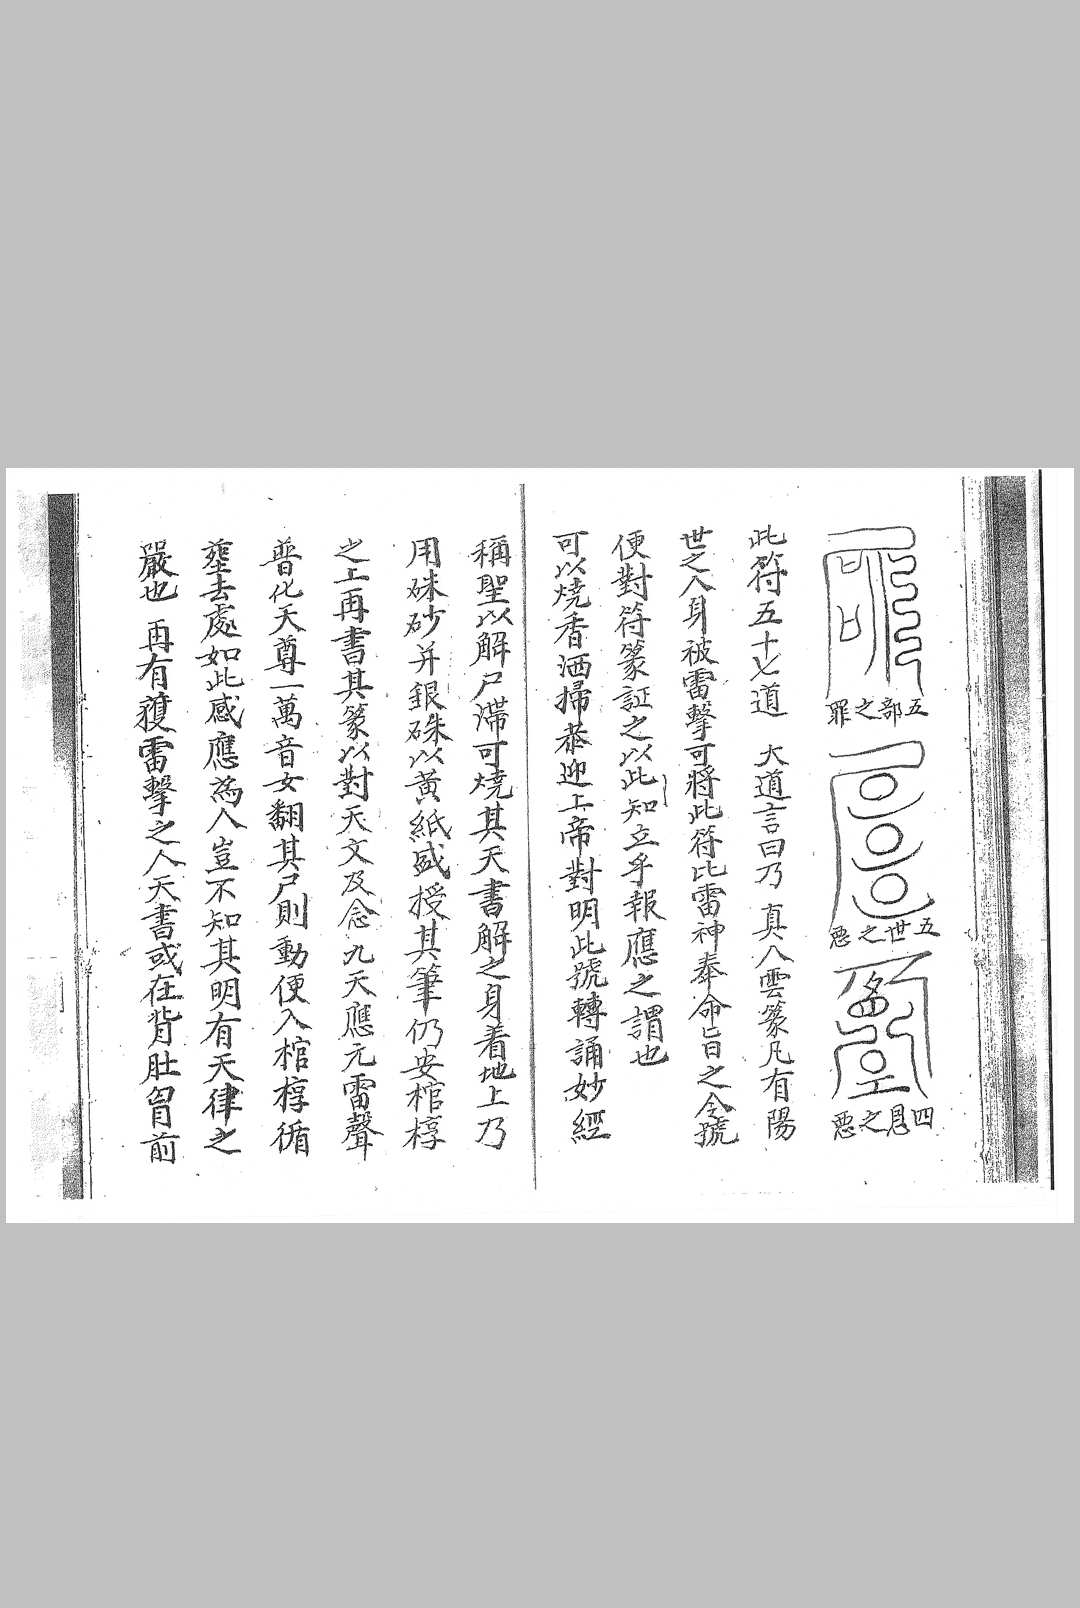 五部之罪
五世之惡
四恩之惡
此符五十七道　大道言曰乃　真人雲篆凡有陽
世之人身被雷擊可將此符比雷神奉命旨之令號
便對符篆証之以此知立乎報應之謂也
可以燒香洒掃恭迎上帝對明此號轉誦妙經
稱聖以解尸滯可燒其天書解之身着地上乃
用硃砂并銀硃以黃紙盛授其筆仍安棺椁
之上再書其篆以對天文及念九天應元雷聲
普化天尊一萬音女翻其尸則動便入棺椁循
葬去處如此感應為人豈不知其明有天律之
嚴也　再有獲雷擊之人天書或在背肚胷前